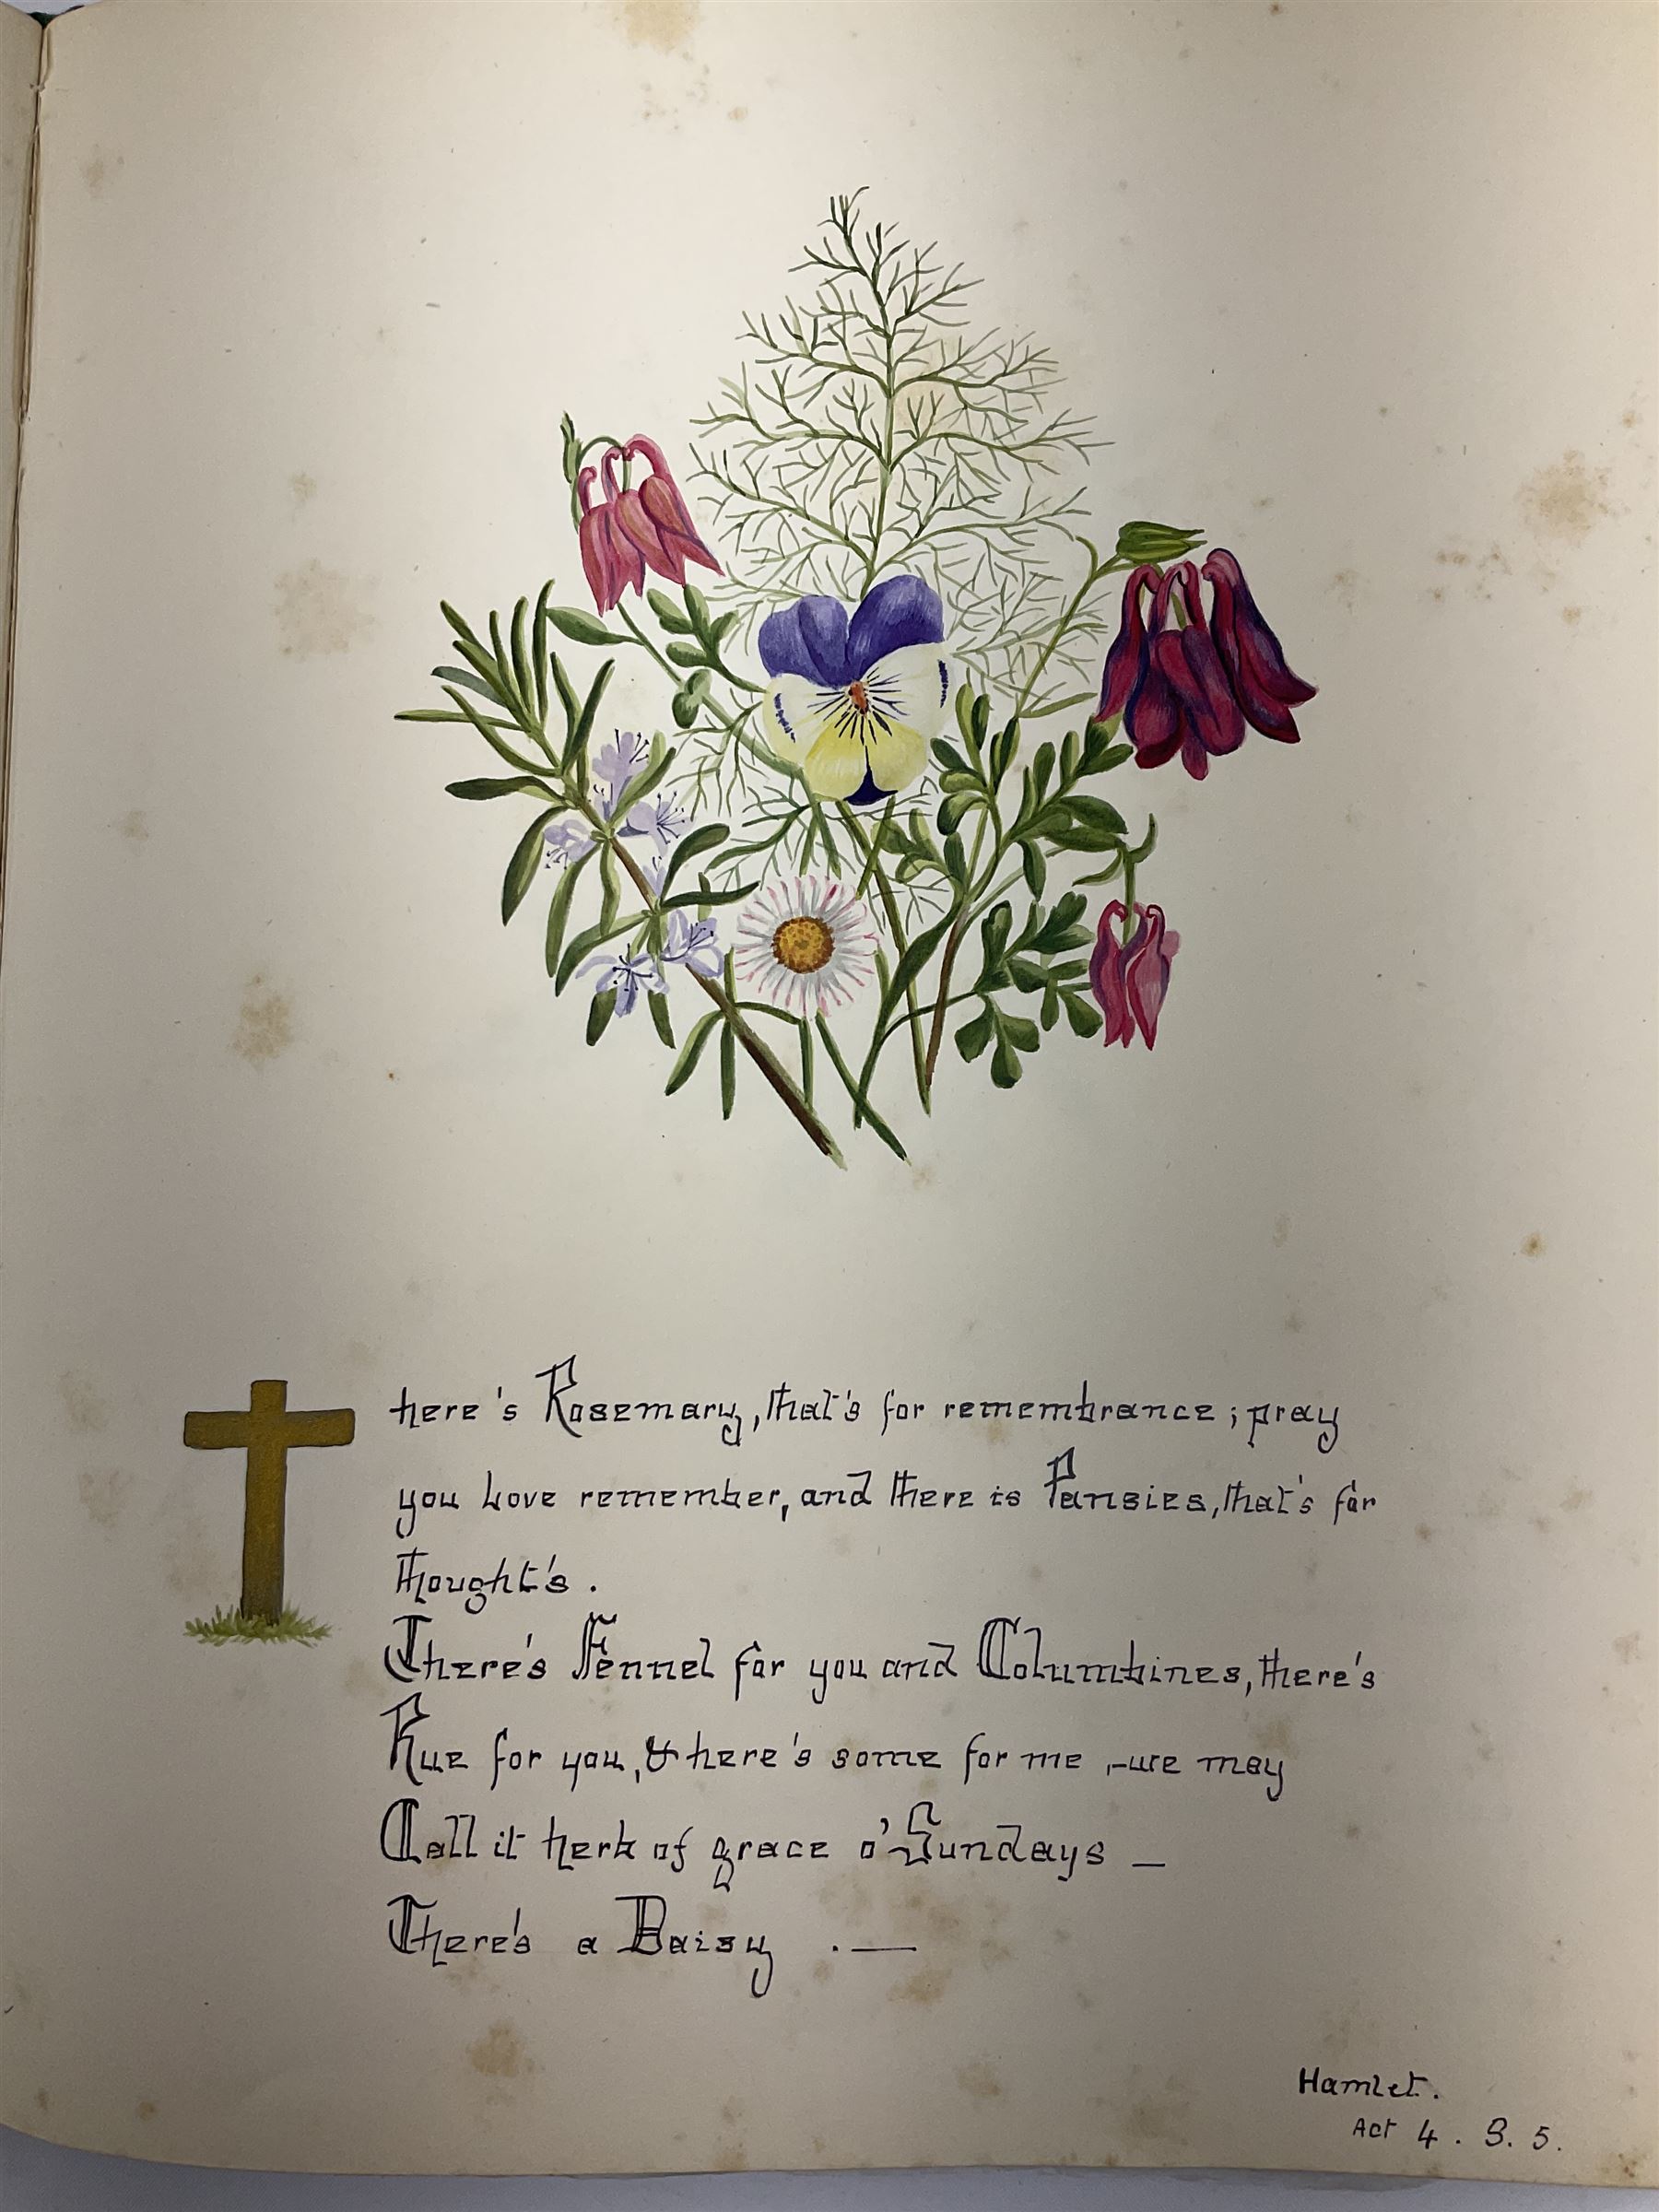 There's Rosemary, that's for remembrance; pray
you Love remember, and there is Pansies, that's for
thought's.
There's Fennel for you and Columbines, there's
Rue for you, & here's some for me,-we may
Call it herb of grace o' Sundays —
There's a Daisy . —
Hamlet.
Act 4 . S. 5.